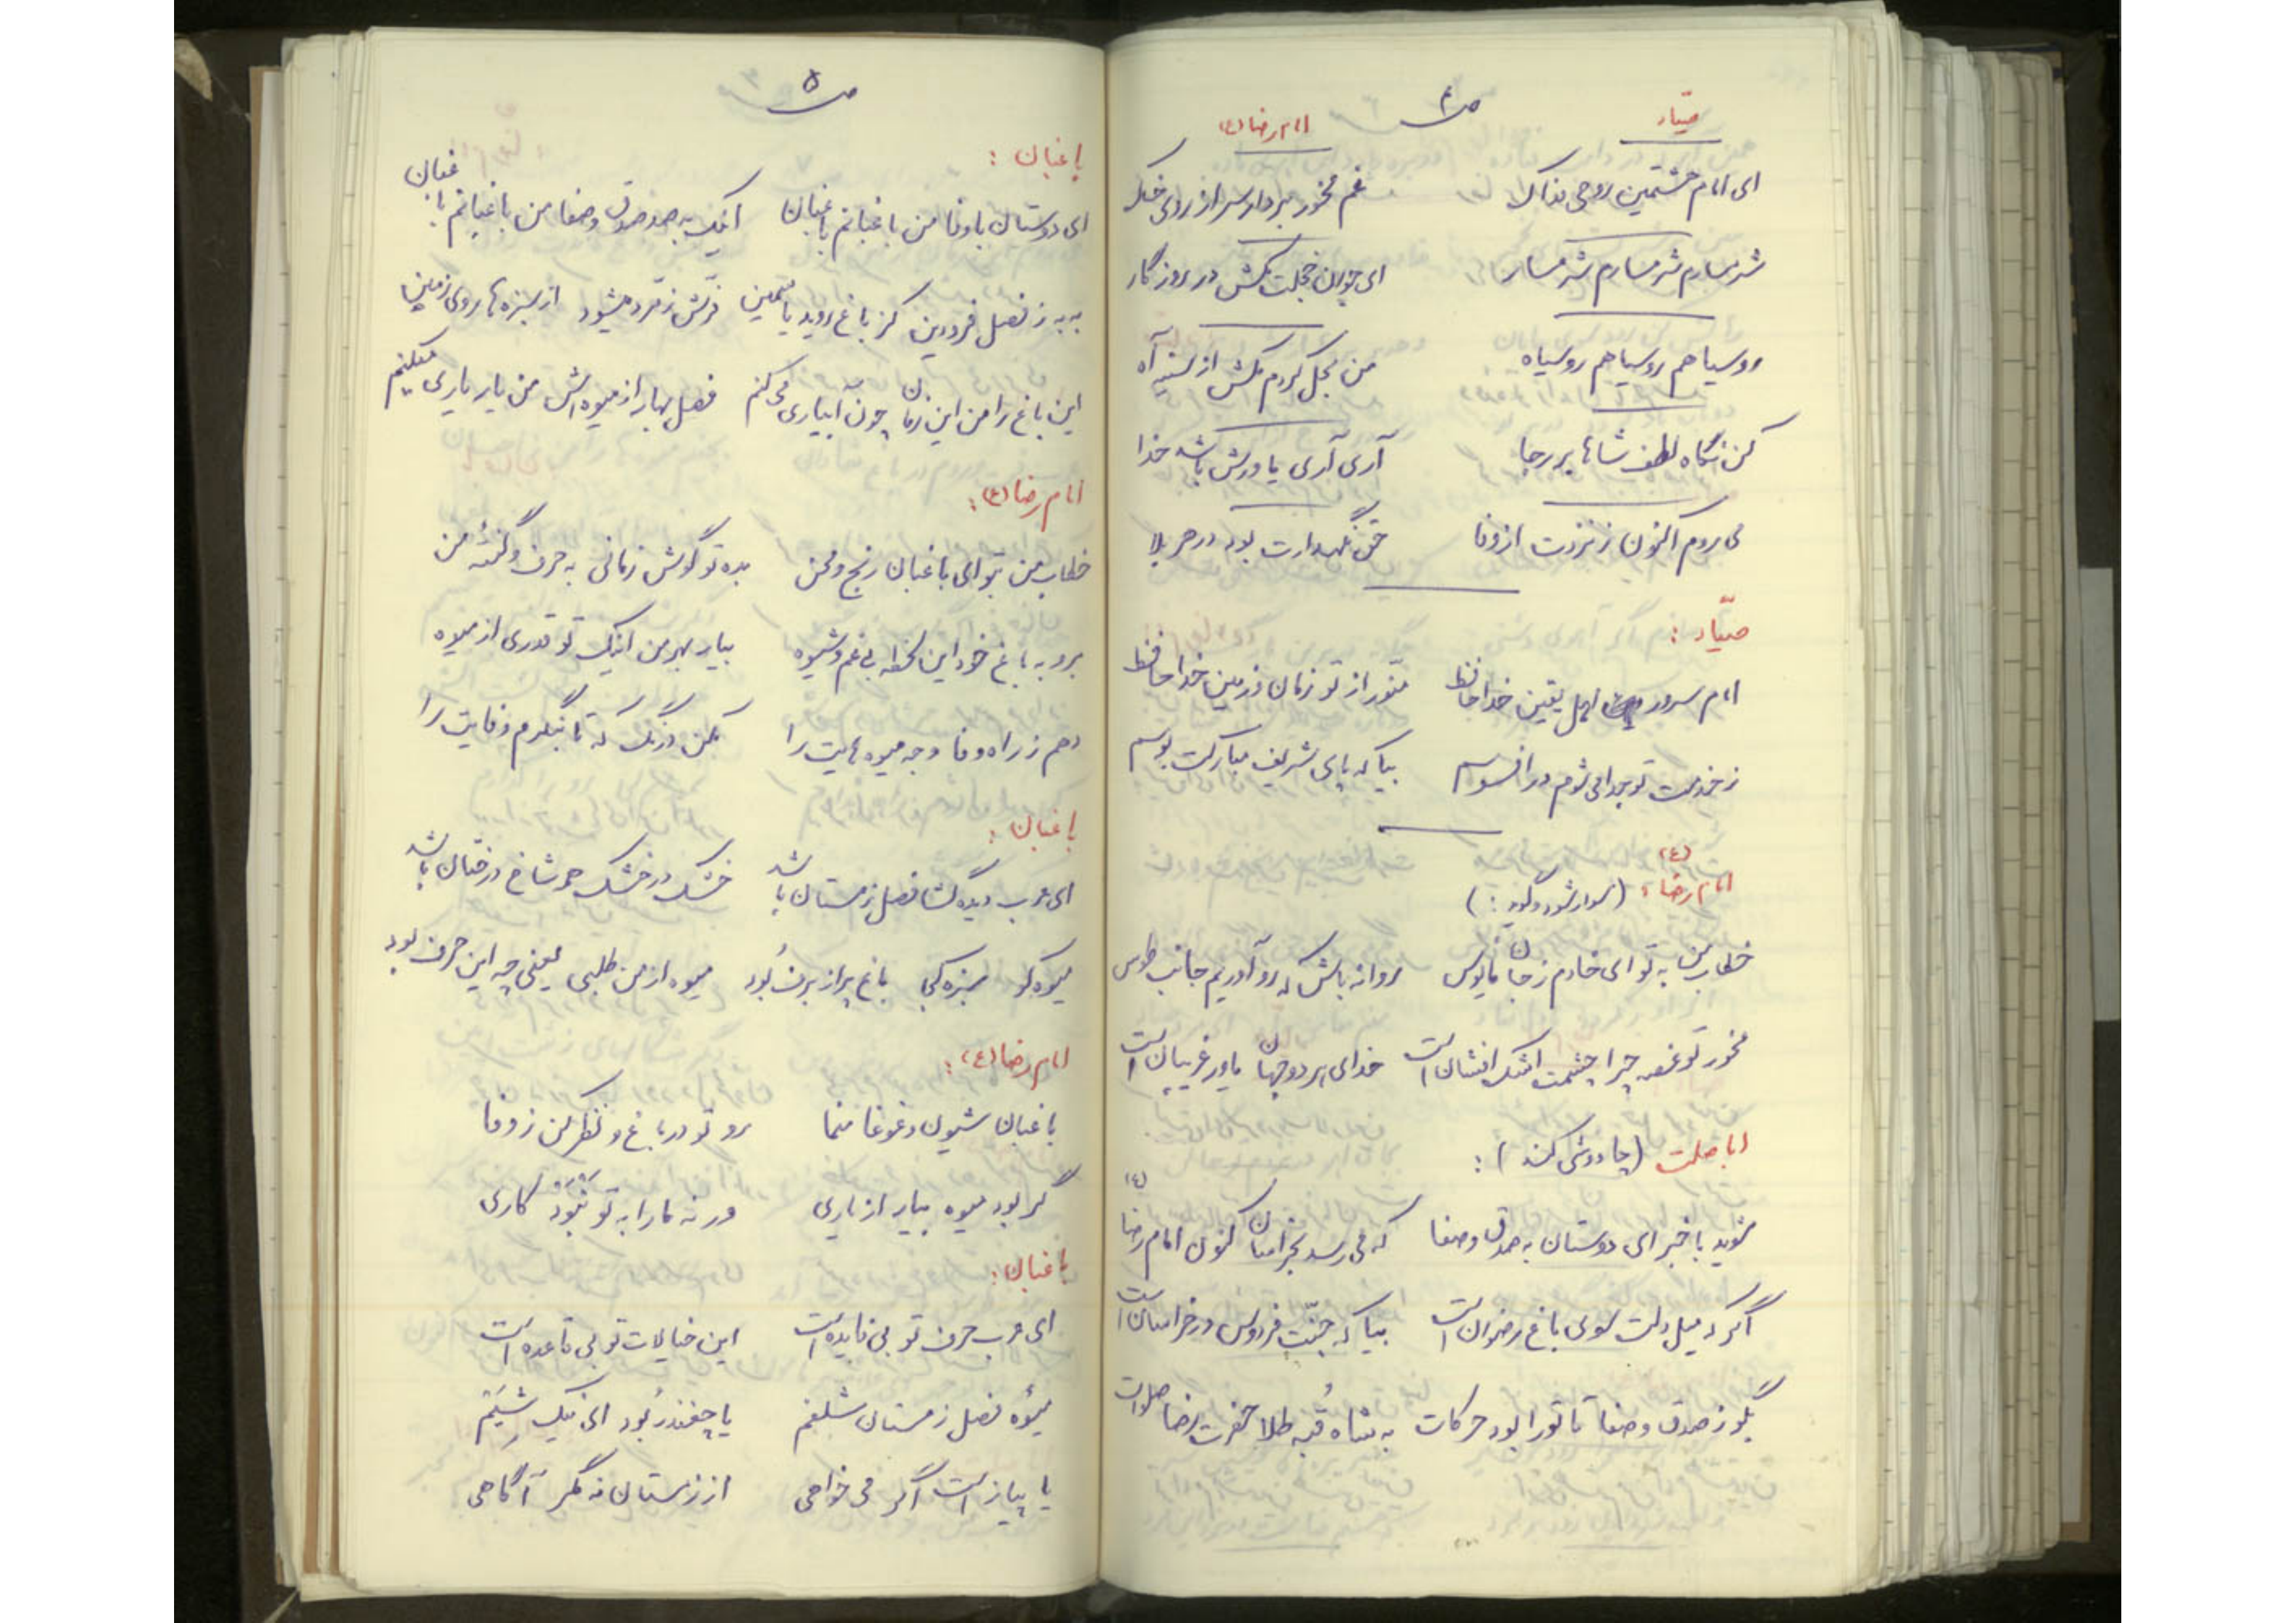 ص ۴
صیاد
امام رضا (ع)
ای امام هشتمین روحی فداک غم مخور بردار سر از روی خاک
شرمسارم شرمسارم شرمسار ای جوان خجلت مکش در روزگار
روسیاهم روسیاهم روسیاه من بحل کردم مکش از سینه آه
کن نگاه لطف شاها بر رجا آری آری یاورش باشد خدا
می روم اکنون ز نزدت از وفا حق نگهدارت بود در هر بلا
صیّاد :
امام سرور اهل یقین خداحافظ منّور از تو زمان و زمین خداحافظ
ز خدمت تو جدا می شوم در افسوسم بیا که پای شریف مبارکت بوسم
امام رضا (ع) (سوار شود و گوید : )
خطاب من به تو ای خادم ز جان مایوس روانه باش که رو آوریم جانب طوس
مخور تو غصه چرا چشمت اشک افشان است خدای هر دو جهان یاور غریبان است
اباصلت (چاووشی کند ) :
شوید با خبر ای دوستان به صدق و صفا که می رسد بخراسان کنون امام رضا (ع)
اگر که میل دلت سوی باغ رضوان است بیا که جنّت فردوس در خراسان است
بگو ز صدق و صفا تا تو را بود حرکات به شاه قُبه طلا حضرت رضا صلوات
ص ۵
باغبان :
ای دوستان باوفا من باغبانم باغبان اینک به صد صدق و صفا من باغبانم باغبان
به به ز فصل فرودین کز باغ روید یاسمین فرش زمّرد میشود از سبزه ها روی زمین
این باغ را من این زمان چون آبیاری می کنم فصل بهار از میوه اش من یار یاری میکنم
امام رضا (ع) :
خطاب من بتو ای باغبان رنج و محن بده تو گوش زمانی به حرف و گفتۀ من
برو به باغ خود این لحظه بی غم و شیوه بیار بهر من اینک تو قدری از میوه
دهم ز راه وفا وجه میوه هایت را مکن درنگ که تا بنگرم وفایت را
باغبان :
ای عرب دیده گشا فصل زمستان باشد خشک در خشک همه شاخ درختان باشد
میوه کو سبزه کجا باغ پر از برف بُود میوه از من طلبی یعنی چه این حرف بود
امام رضا (ع) :
باغبان شیون و غوغا منما رو تو در باغ و نظر کن ز وفا
گر بود میوه بیار از یاری ورنه ما را به تو نَبُوَد کاری
باغبان :
ای عرب حرف تو بی فایده است این خیالات تو بی قاعده است
میوۀ فصل زمستان شلغم یا چغندر بُود ای نیک شیَم
یا پیاز است اگر می خواهی از زمستان نه مگر آگاهی